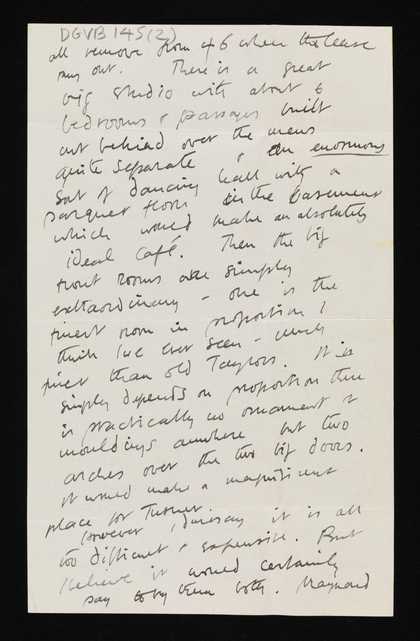 DGVB 145(2)
all remove from 46 when the lease
runs out. There is a great
big studio with about 6
bedrooms & passages built
out behind over the mews
quite separate, & an enormous
sort of dancing hall with a
parquet floor in the basement
which would make an absolutely
ideal café. Then the big
front rooms are simply
extraordinary - one is the
finest room in proportion I
think I've ever seen - much
finer than old Taylors. It is
simply depends on proportion there
is practically no ornament or
mouldings anywhere but two
arches over the two big doors.
It would make a magnificent
place for Turner.
However I daresay it is all
too difficult & expensive. But
I believe it would certainly
pay to buy them both. Maynard